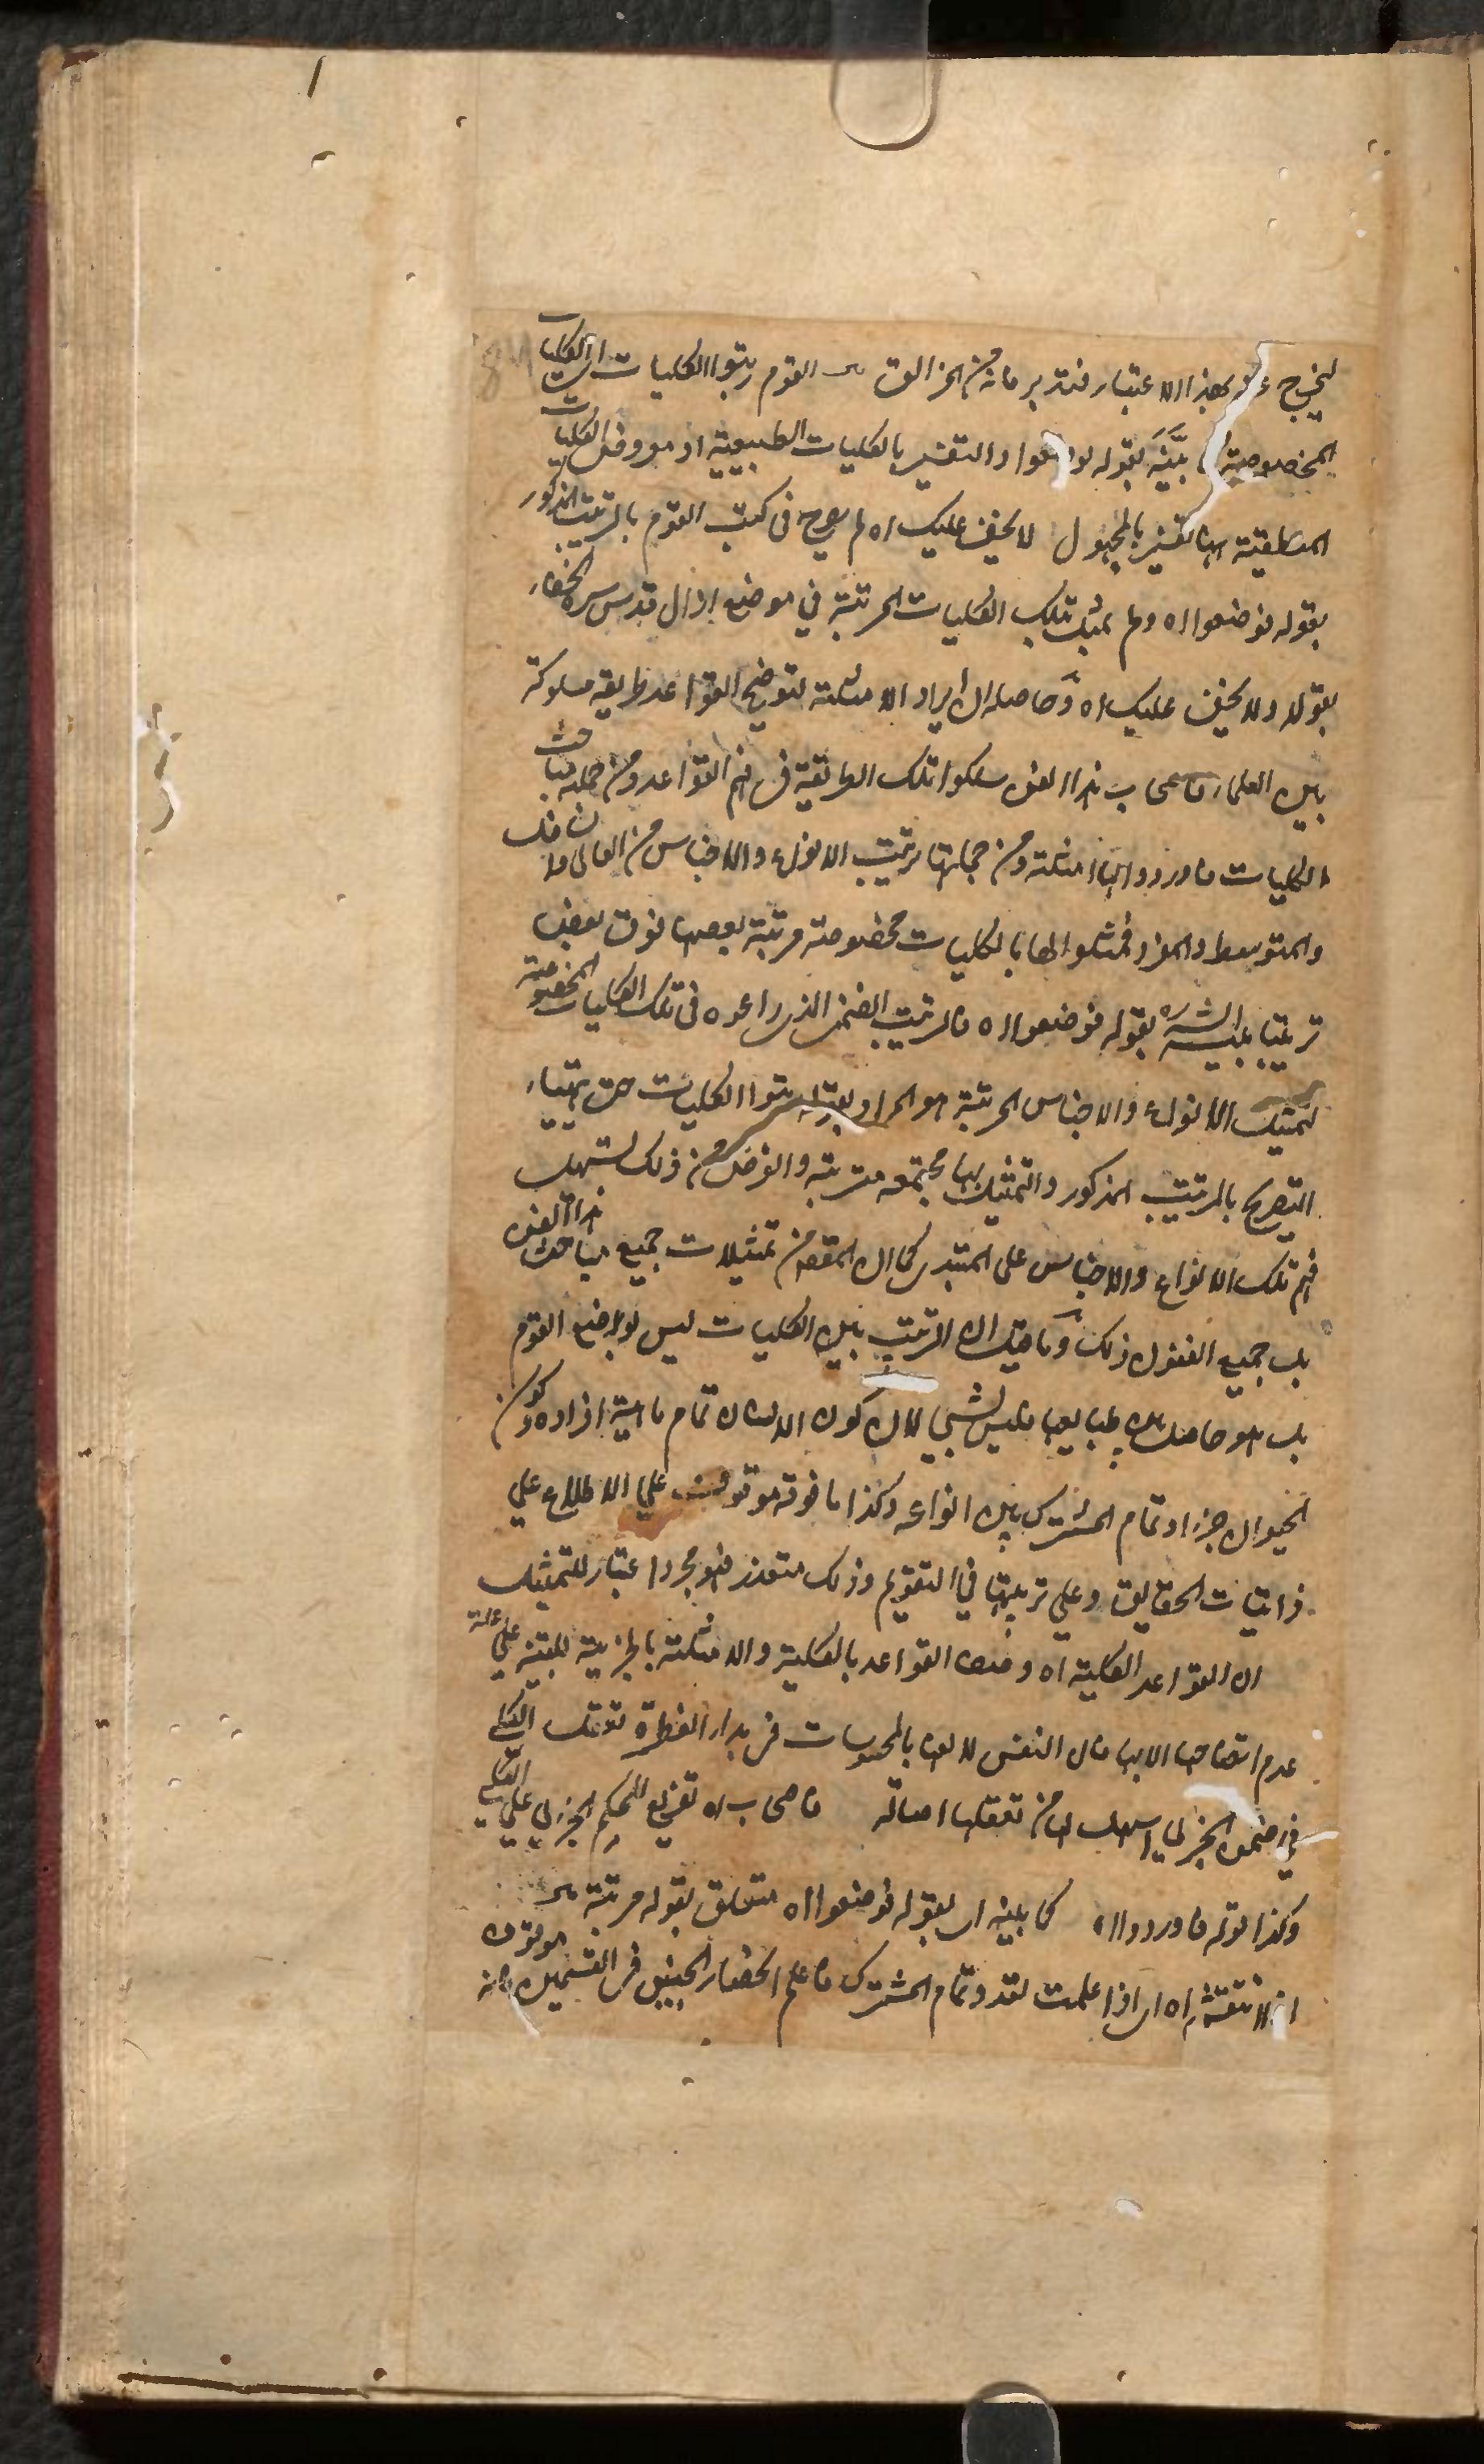 ليخرج عنه بهذا الاعتبار فتدبر فانه من المزالق القوم رتبوا الكليات اى الكليات
المخصوصة بيّنه بقوله فوضعوا والتفسير بالكليات الطبيعية او معروض الكليات
المنطقية ههنا تفسير بالمجهول لا يخفى عليك اه لم يصرح فى كتب القوم بالترتيب المذكور
بقوله فوضعوا اه ولم يمثل تلك الكليات المرتبة في موضع ازال قدس سره الخفاء
بقوله ولا يخفى عليك اه وحاصله ان ايراد الامثلة لتوضيح القواعد طريقة مسلوكة
بين العلماء فاصحاب هذا الفن سلكوا تلك الطريقة فى فهم القواعد ومن جملة مباحث
الكليات فاوردوا لها امثلة ومن جملتها ترتيب الانواع والاجناس من العالى والسافل
والمتوسط والمفرد فمثلوا لها بالكليات مخصوصة مرتبة بعضها فوق بعض
ترتيبا بينه الش ره بقوله فوضعوا اه فالترتيب الضمنى الذى راعوه فى تلك الكليات المخصوصة
لتمثيل الانواع والاجناس المرتبة هو المراد بقوله رتبوا الكليات حتى يتهيا
التصريح بالترتيب المذكور والتمثيل بها مجتمعة مترتبة والغرض من ذلك تسهيل
فهم تلك الانواع والاجناس على المبتدى كما ان المقص من تمثيلات جميع مباحث هذا الفن
بل جميع الفنون ذلك وما قيل ان الترتيب بين الكليات ليس بوضع القوم
بل هو حاصل بين طبايعها فليس بشيء لان كون الانسان تمام ماهية افراده وكون
الحيوان جزء او تمام المشترك بين انواعه وكذا ما فوقه موقوف على الاطلاع على
ذاتيات الحقايق وعلى ترتيبها في التقويم وذلك متعذر فهو مجرد اعتبار للتمثيل
ان القواعد الكلية اه وصف القواعد بالكلية والامثلة بالجزئية للتنبيه على علة
عدم اتضاحها الا بها فان النفس لالفها بالمحسوسات فى بدء الفطرة تعقل الكلى
في ضمن الجزئي اسهل لها من تعقلها اصالة فاصحاب اه تفريع للحكم الجزئي على الكلى
وكذا قوله فاوردوا اه كما بينه اى بقوله فوضعوا اه متعلق بقوله مرتبة
اذا انتقش اه اى اذا علمت تعدد تمام المشترك فاعلم انحصار الجنس فى القسمين فانه موقوف